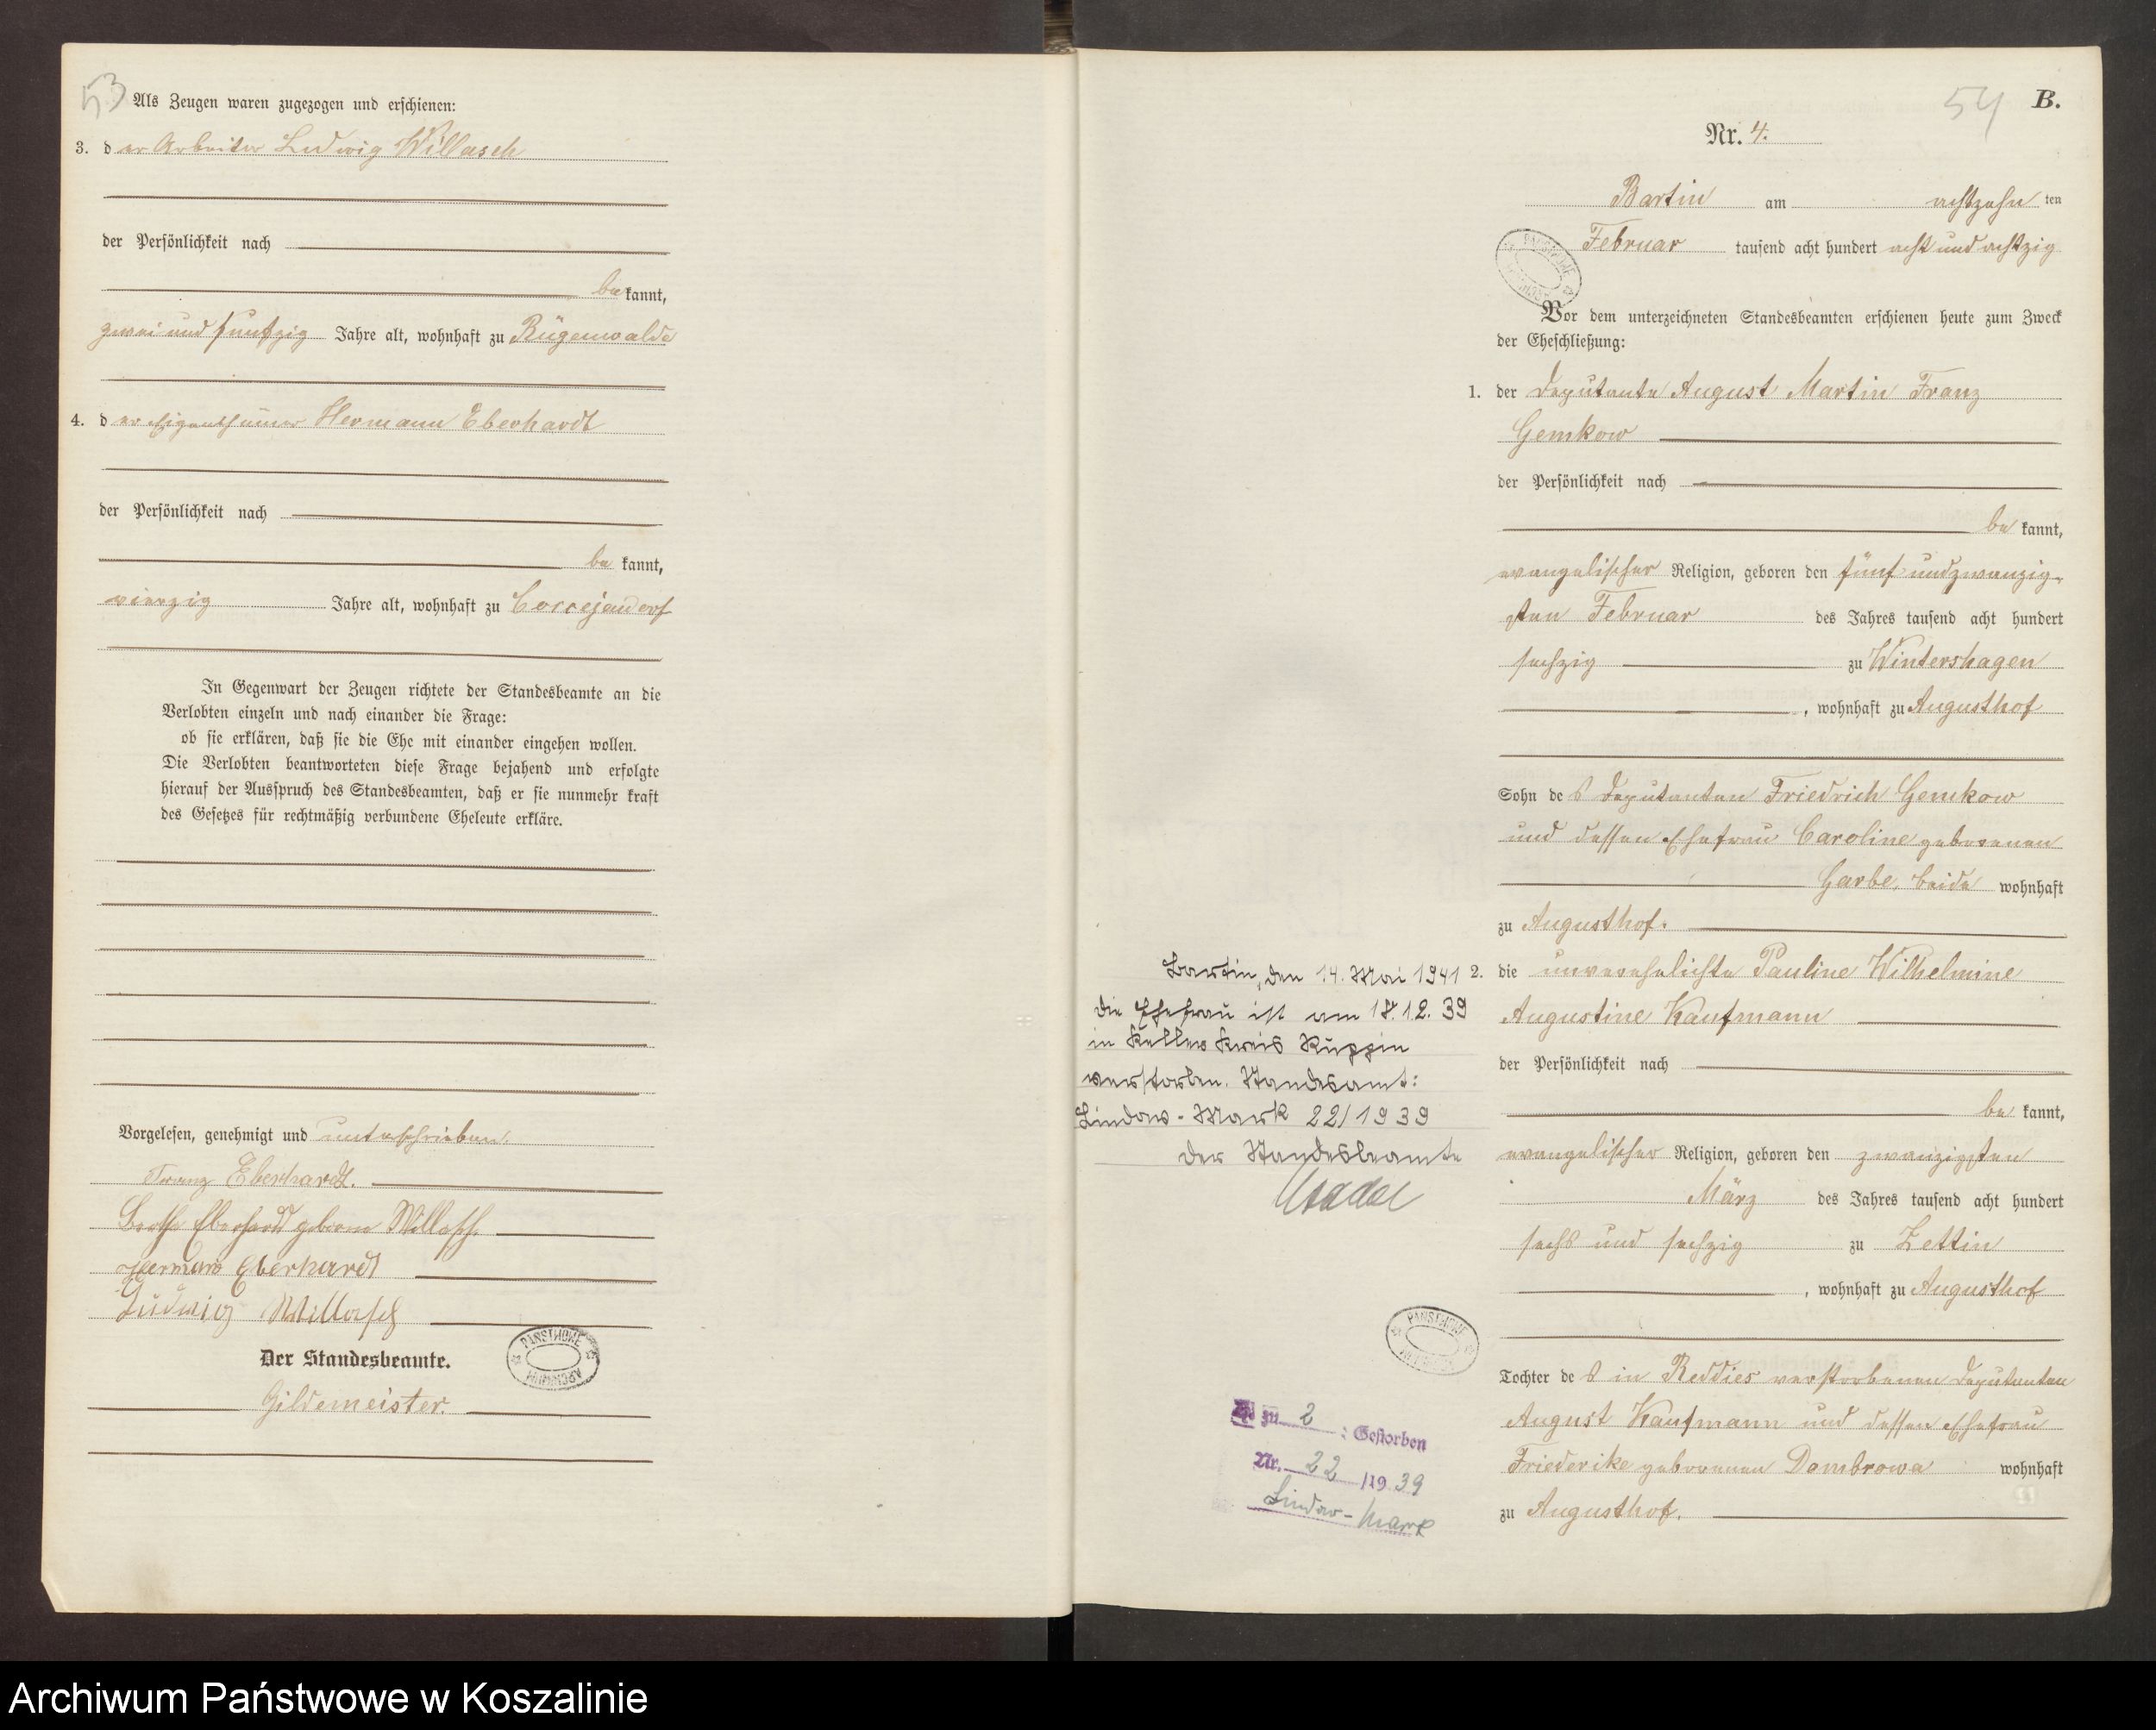 53
Als Zeugen waren zugezogen und erschienen:
3. der Arbeiter Ludwig Willasch
der Persönlichkeit nach
bekannt,
zwei und funfzig Jahre alt, wohnhaft zu Rügenwalde
4. der Eigenthümer Hermann Eberhardt
der Persönlichkeit nach
be kannt,
vierzig Jahre alt, wohnhaft zu Coccejendorf
In Gegenwart der Zeugen richtete der Standesbeamte an die
Verlobten einzeln und nach einander die Frage:
ob sie erklären, daß sie die Ehe mit einander eingehen wollen.
Die Verlobten beantworteten diese Frage bejahend und erfolgte
hierauf der Ausspruch des Standesbeamten, daß er sie nunmehr kraft
des Gesetzes für rechtmäßig verbundene Eheleute erkläre.
Vorgelesen, genehmigt und unterschrieben.
Franz Eberhardt.
Eberhardt geborene Willasch.
Hermann Eberhardt
Ludwig Willasch
Der Standesbeamte.
Gildemeister.
PAŃSTWOWE ARCHIWUM
54
B.
Nr. 4.
Bartin am achtzehn ten
Februar tausend acht hundert acht und achtzig
PAŃSTWOWE ARCHIWUM
Vor dem unterzeichneten Standesbeamten erschienen heute zum Zweck
der Eheschließung:
1. der Deputante August Martin Franz
Gemkow
der Persönlichkeit nach
be kannt,
evangelischer Religion, geboren den fünf und zwanzig-
sten Februar des Jahres tausend acht hundert
sechzig zu Wintershagen
, wohnhaft zu Augusthof
Sohn des Deputanten Friedrich Gemkow
und dessen Ehefrau Caroline geborenen
Garbe, beide wohnhaft
zu Augusthof.
2. die unverehelichte Pauline Wilhelmine
Augustine Kaufmann
der Persönlichkeit nach
be kannt,
evangelischer Religion, geboren den zwanzigsten
März des Jahres tausend acht hundert
sechs und sechzig zu Zettin
, wohnhaft zu Augusthof
Tochter des in Reddies verstorbenen Deputanten
August Kaufmann und dessen Ehefrau
Friederike geborenen Dombrowa wohnhaft
zu Augusthof.
Bartin, den 14. Mai 1941
Die Ehefrau ist am 18.12.39
in Keller Kreis Ruppin
verstorben. Standesamt:
Lindow-Mark 22/1939
Der Standesbeamte
PAŃSTWOWE ARCHIWUM
zu 2 : Gestorben
Nr. 22 /19 39
Lindow-Mark
Archiwum Państwowe w Koszalinie